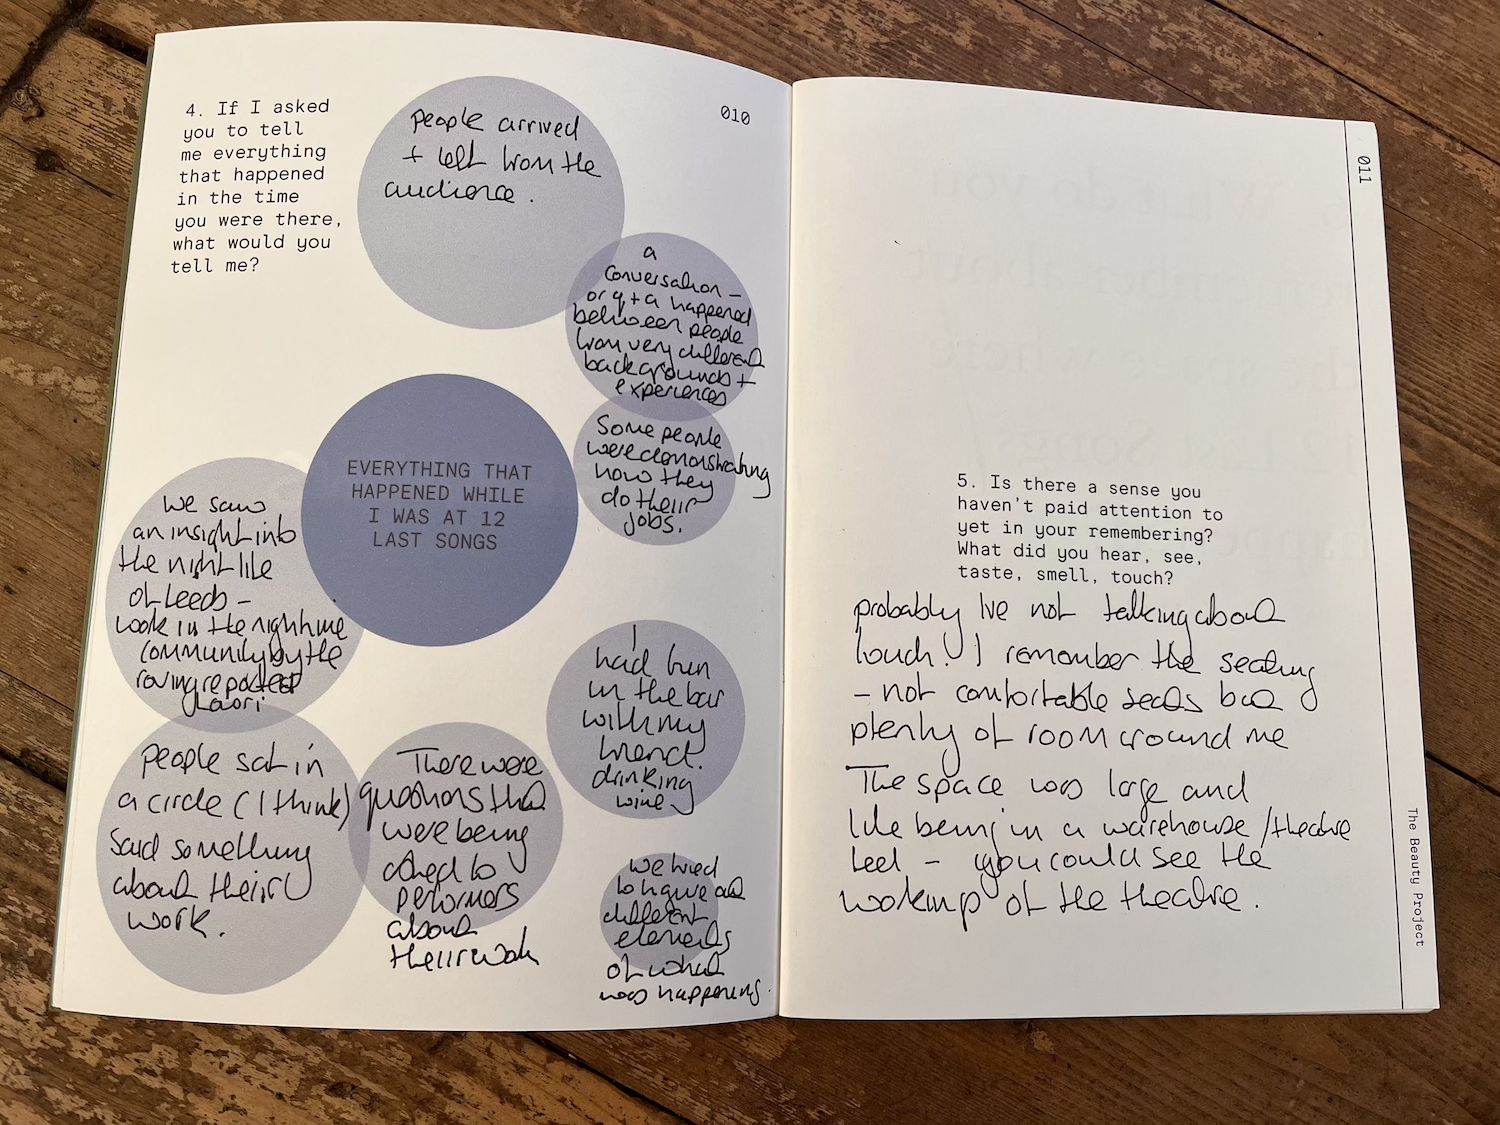 4. If I asked
you to tell
me everything
that happened
in the time
you were there,
what would you
tell me?
010
people arrived
+ left from the
audience.
a
conversation –
or q + a happened
between people
from very different
backgrounds +
experiences
Some people
were demonstrating
how they
do their
jobs.
EVERYTHING THAT
HAPPENED WHILE
I WAS AT 12
LAST SONGS
we saw
an insight into
the night life
of Leeds –
work in the nightime
community by the
roving reporter
people sat in
a circle (I think)
said something
about their
work.
There were
questions that
were being
asked to
performers
about
their work
I
had fun
in the bar
with my
friend.
drinking
wine
we tried
to figure out
different
elements
of what
was happening.
011
5. Is there a sense you
haven't paid attention to
yet in your remembering?
What did you hear, see,
taste, smell, touch?
probably Ive not talking about
touch! I remember the seating
– not comfortable seats but
plenty of room around me
The space was large and
like being in a warehouse / theatre
feel – you could see the
of the theatre.
The Beauty Project